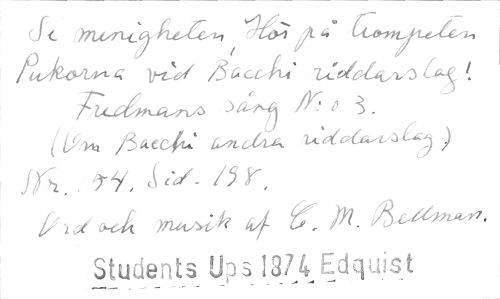 Se menigheten, Hör på trompeten
Pukorna vid Bacchi riddarslag!
Fredmans sång N:o 3.
(Om Bacchi andra riddarslag)
Nr. 54. Sid. 198.
Ord och musik af C. M. Bellman.
Students Ups 1874 Edquist